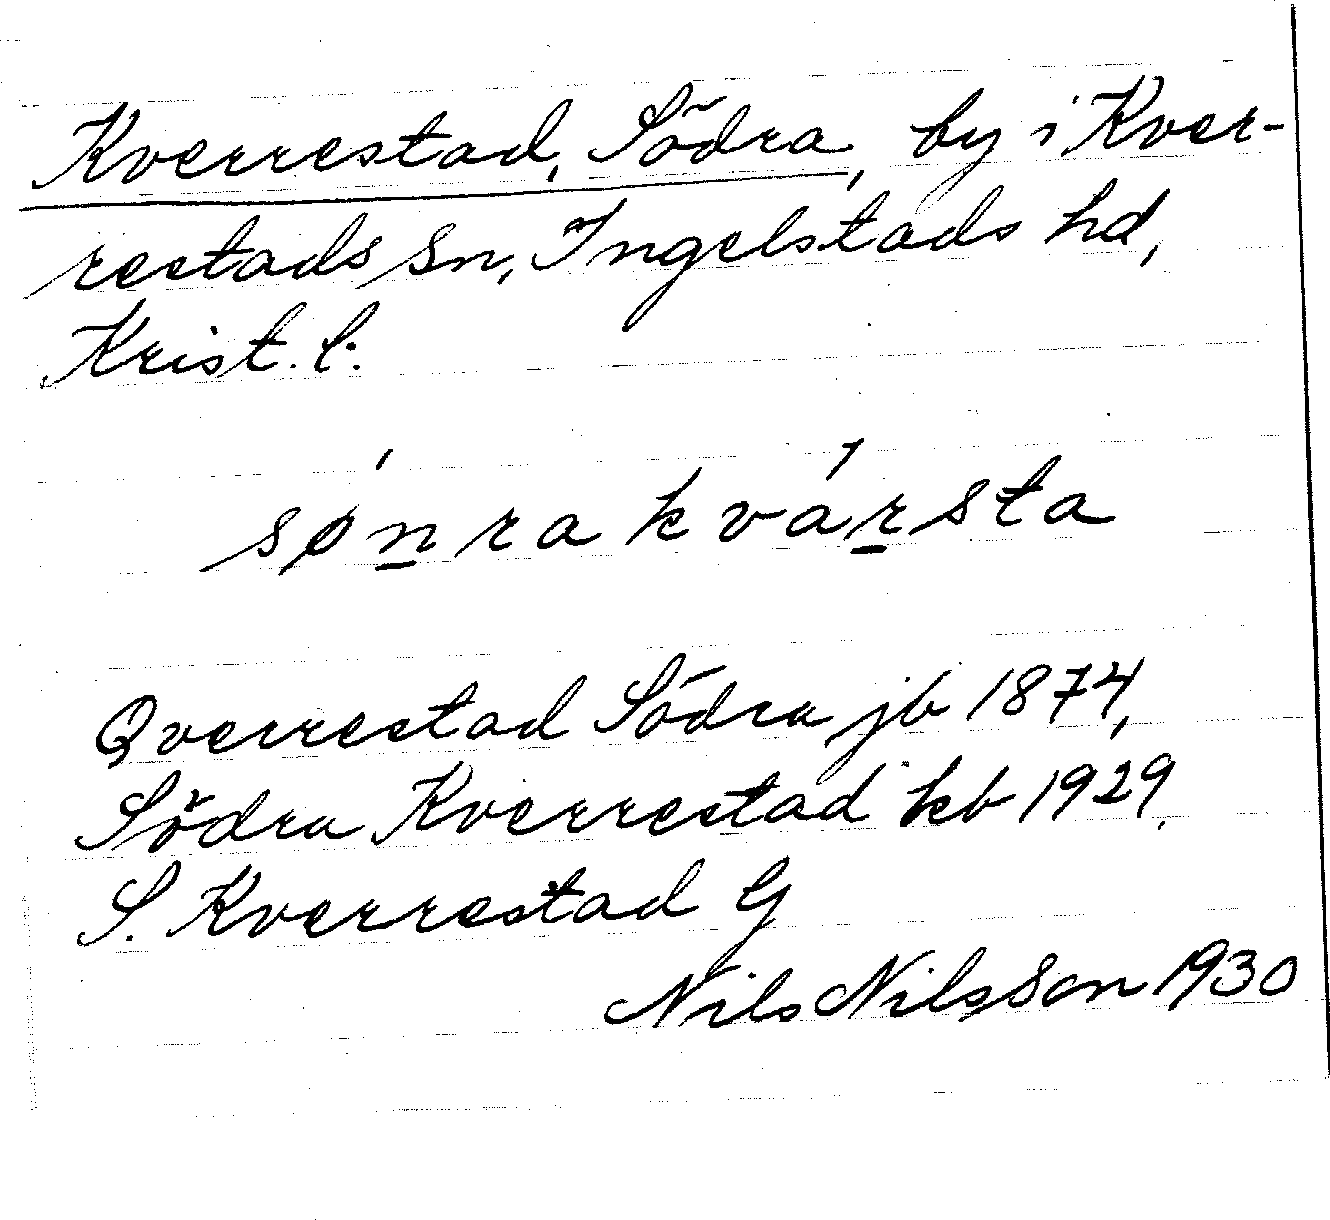 Kverrestad, Södra, by i Kver-
restads sn, Ingelstads hd,
Krist. l.
sønra kvársta
Qverrestad Södra jb 1874,
Södra Kverrestad kb 1929.
S. Kverrestad G
Nils Nilsson 1930